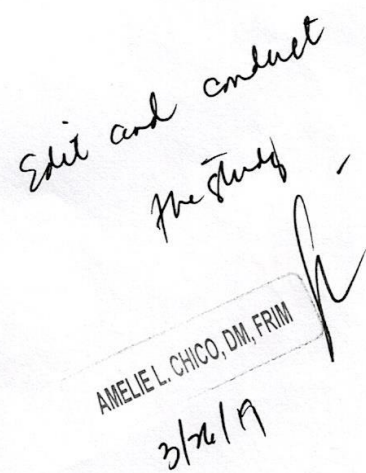 Edit and conduct
the study
AMELIE L. CHICO, DM, FRIM
3/26/19